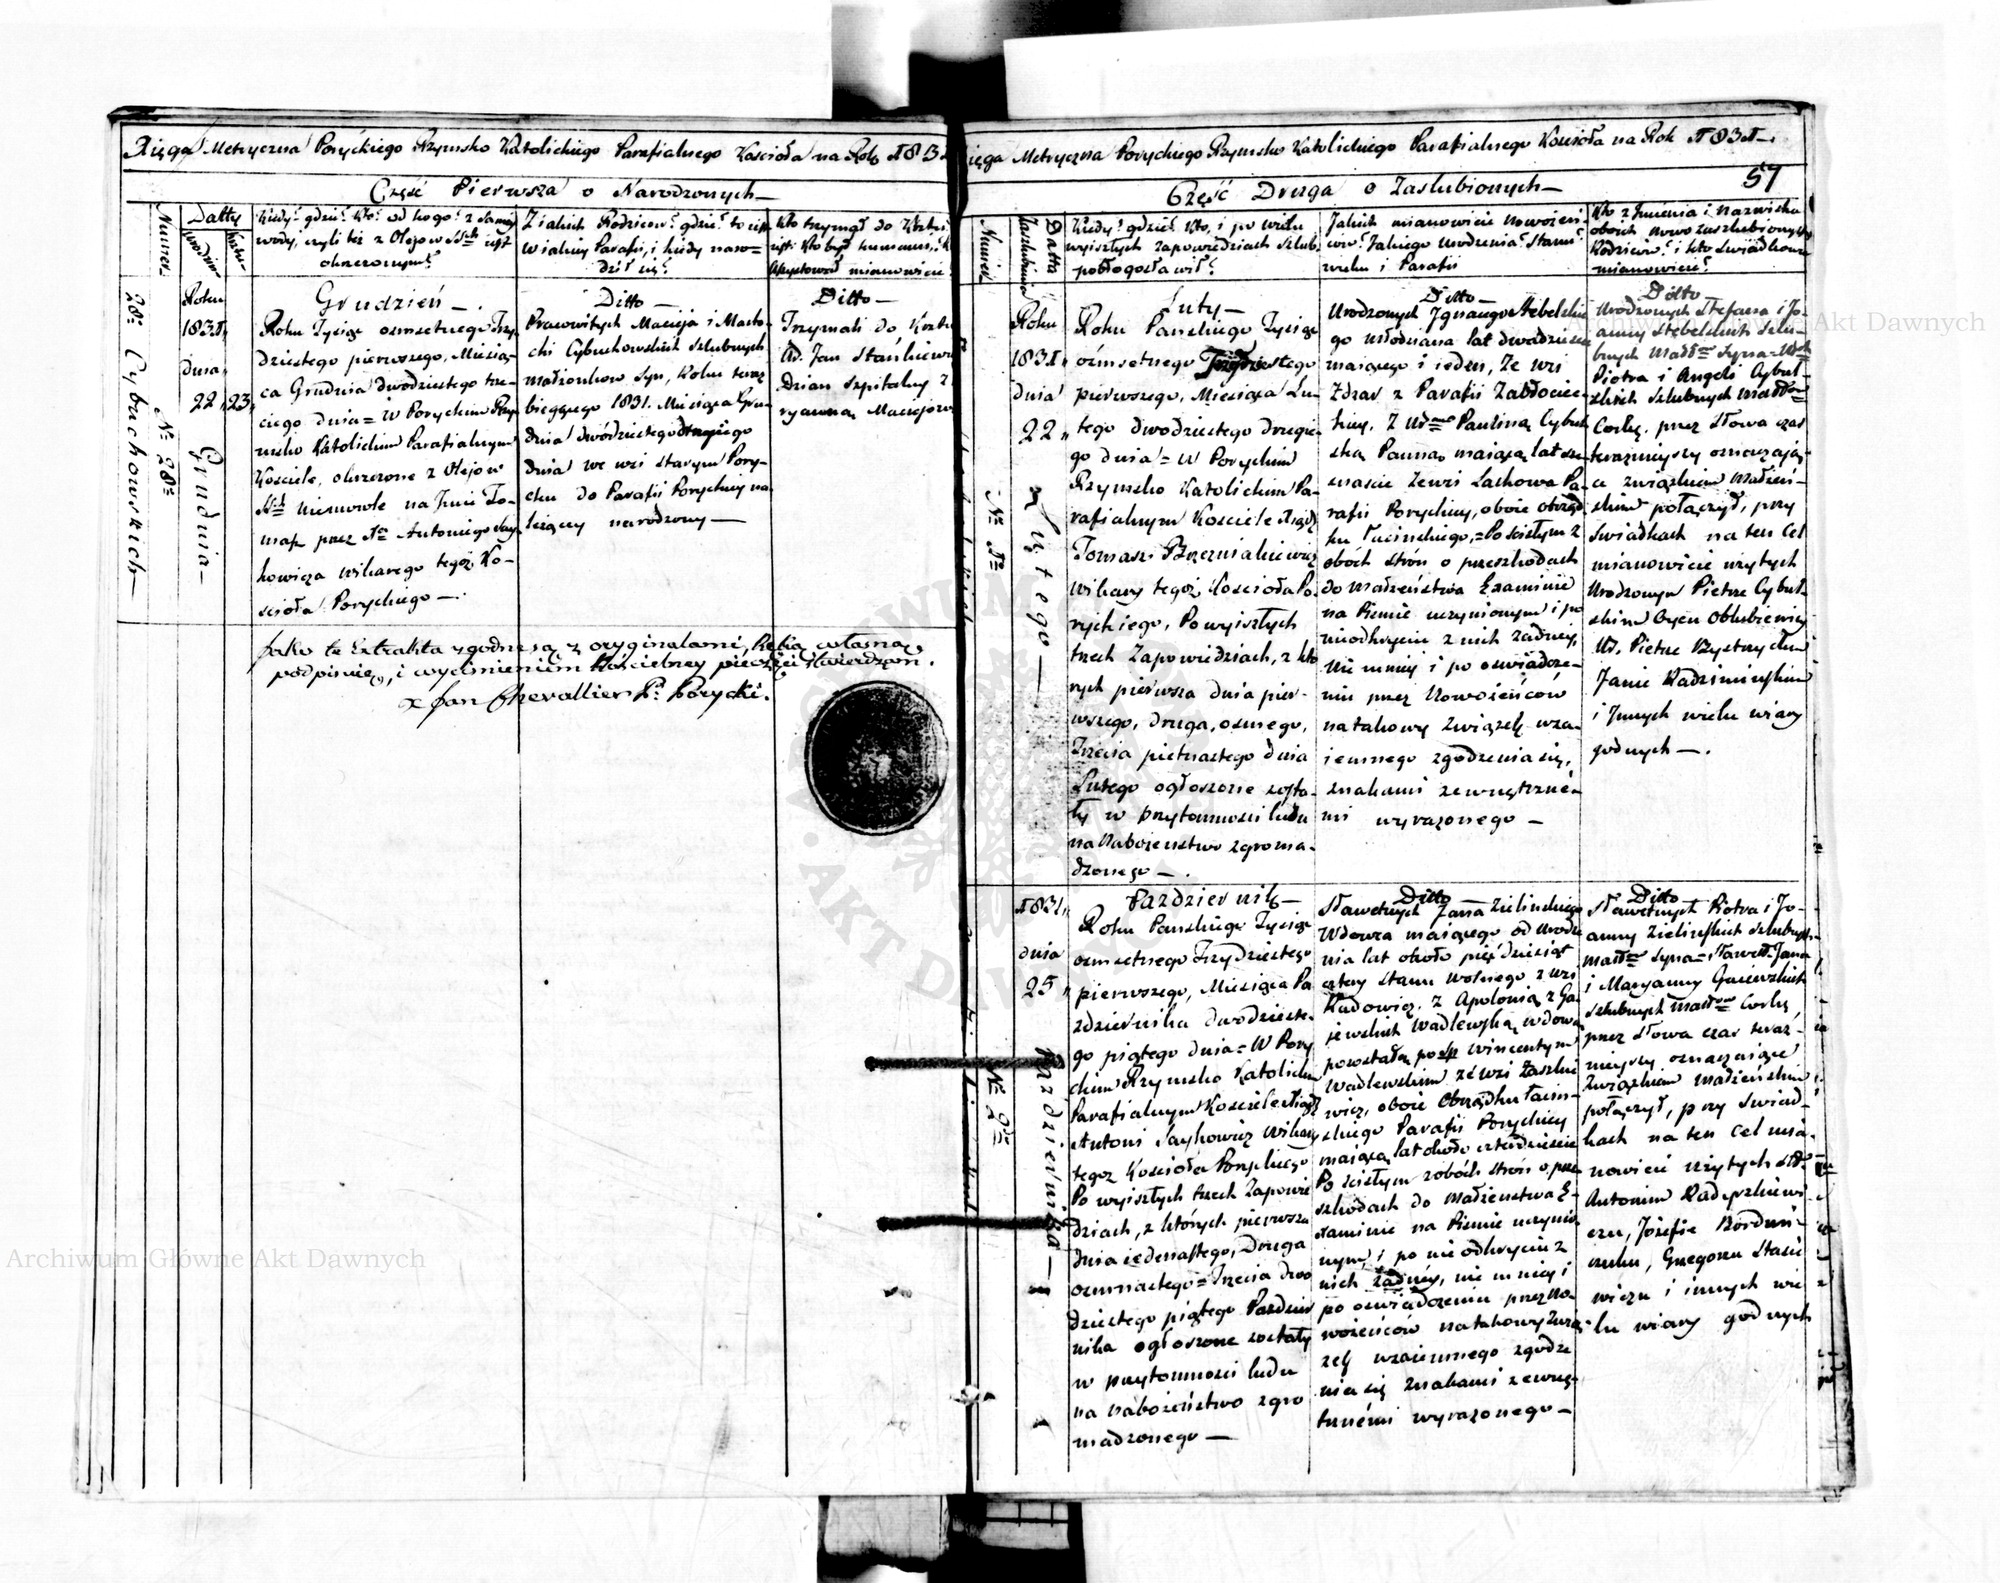 Xięga Metryczna Poryckiego Rzymsko Katolickiego Parafialnego Kościoła na Rok 183
Część Pierwsza o Narodzonych—
Numer
Datty
urodzin
Kiedy? gdzie? Kto? od kogo? z Samey
wody, czyli też z Olejow Stch iest
okrzczonym?
Z iakich Rodzicow? gdzie? to iest
w iakiey Parafii, i kiedy naro=
dził się?
Kto trzymał do Krztu
asystował mianowicie
28. Cybuchowskich—
Nr 28
Grudnia—
Roku
1831,
dnia
22 23
Grudzień—.
Roku Tysiąc osmsetnego Trzy
dziestego pierwszego, Miesią-
ca Grudnia dwodziestego trze-
ciego dnia= w Poryckim Rzy-
msko Katolickim Parafialnym
Kościele, okrzczone z Olejow
Stch niemowle na Imie To-
masz przez Xa Antoniego Say-
kowicza wikarego tegoż Ko-
ścioła Poryckiego—.
Ditto—
Pracowitych Macieja i Mar
Cybuchowskich szlubnych
małżonkow Syn, Roku teraz
bieggcego 1831. Miesiąca Gru-
dnia dwódziestego drugiego
dnia we wsi Starym Pory-
cku do Parafii Poryckiey na-
leżący narodzony—
Ditto—
Trzymali do Krztu
Jan Stańkiewi
Dziad szpitalny z
ryanną Maciejow
Jako te Extrakta zgodne są z oryginałami, Ręką własną
podpisuię, i wyciśnieniem Kościelney pieczęci stwierdzam.
x Jan Chevallier Pr. Porycki.
ięga Metryczna Poryckiego Rzymsko Katolickiego Parafialnego Kościoła na Rok 1831.
Część Druga o Zaślubionych—
57
Numer
Datta
Zaślubienia
Kiedy? gdzie? Kto, i po wielu
wyiszłych zapowiedziach szlub
pobłogosławił?
Jakich mianowicie Nowożeń
ców? Jakiego Urodzenia? Stanu?
wieku i Parafii
Kto z Imienia i Nazwiska
oboich nowo zaszlubionych
Rodziców? i kto świadkowie
mianowicie?
Nr 1
Lutego—
Roku
1831.
dnia
22
Luty—
Roku Pańskiego Tysiąc
ośmsetnego Trzydziestego
pierwszego, Miesiąca Lu-
tego dwodziestego drugie-
go dnia= W Poryckim
Rzymsko Katolickim Pa-
rafialnym Kościele Xiądz
Tomasz Brzezniakiewicz
wikary tegoż Kościoła Po-
ryckiego, Po wyiszłych
trzech Zapowiedziach, z któ
rych pierwsza dnia pier-
wszego, druga, osmego,
Trzecia pietnastego dnia
Lutego ogłoszone zosta-
ły w przytomności ludu
na Nabożeństwo zgroma-
dzonego—.
Ditto—
Urodzonych Ignacego Stebelskie
go młodziana lat dwadzieścia
maiącego i ieden, Ze wsi
Zdzar z Parafii Zabłociec-
kiey. Z Urodzoną Pauliną Cybul
ską Panną maiącą lat sze-
snaście Zewsi Lachowa Pa-
rafii Poryckiey, oboie obrząd
ku Łacinskiego,= Po ścisłym z
obóch Strón o przeszkodach
do małżeństwa Examinie
na Piśmie uczynionym i po
nieodkryciu z nich żadney,
nie mniey i po oswiadcze-
niu przez Nowożeńców
na takowy związek wza-
iemnego zgodzenia się,
znakami zewnętrzne-
mi wyrażonego—
Ditto
Urodzonych Stefana i Jo-
anny Stebelskich szlu-
bnych Małż Syna= Ur
Piotra i Angeli Cybul-
skich szlubnych Małż
Corkę. przez słowa czas
teraźnieyszy oznaczają-
ce związkiem Małżeń-
skim połączył, przy
Swiadkach na ten cel
mianowicie użytych
Urodzonym Pietrze Cybul-
skim Oycu Oblubienicy
Ur. Pietrze Bystryckim
Janie Kadzimińskim
i Innych wielu wiary
godnych—.
Nr 2
Października—
1831,
dnia
25
Październik—
Roku Pańskiego Tysiąc
osmsetnego Trzydziestego
pierwszego, Miesiąca Pa
zdziernika dwodzieste-
go piątego dnia= W Pory
ckim Rzymsko Katolickim
Parafialnym Kościele Xiądz
Antoni Saykowicz Wikary
tegoż Kościoła Poryckiego
Po wyiszłych trzech Zapowie
dziach, z których pierwsza
dnia iedenastego, Druga
osmnastego= Trzecia dwo
dziestego piątego Pazdzier
nika ogłoszone zostały
w przytomności ludu
na nabożeństwo zgro
madzonego—
Ditto—
Sławetnych Jana Zielinskiego
Wdowca maiącego od urodze
nia lat około pięćdziesiąt
cztery stanu wolnego z wsi
Radowicz. Z Apolonią z Ga
jewskich Wadlewską wdową
pozostałą po Wincentym
Wadlewskim ze wsi Zaszkie
wicz, oboie Obrządku łacin-
skiego Parafii Poryckiey
maiącą lat około czterdzieście
Po ścisłym zobóch strón o prze
szkodach do małżeństwa E-
xaminie na Piśmie uczynio
nym, i po nie odkryciu z
nich żadney, nie mniey i
po oswiadczeniu przez No-
wożeńców na takowy Zwią-
zek wzaiemnego zgodze
nia się Znakami zewnę-
trznémi wyrażonego—
Ditto
Sławetnych Piotra i Jo-
anny Zielińskich szlubnych
małż Syna= Sławetn Jana
i Maryanny Gaiewskich
szlubnych Małż Corkę
przez słowa czas teraź-
nieyszy oznaczaiące
Związkiem Małżeńskim
połączył, przy Swiad-
kach na ten cel mia-
nowicie użytych
Antonim Kadyszkiewi-
czu, Józefie Bordun-
czuku, Grzegorzu Stasie
wiczu i innych wie
lu wiary godnych
Archiwum Główne Akt Dawnych
Akt Dawnych
ARCHIWUM
AKT DAWNYCH